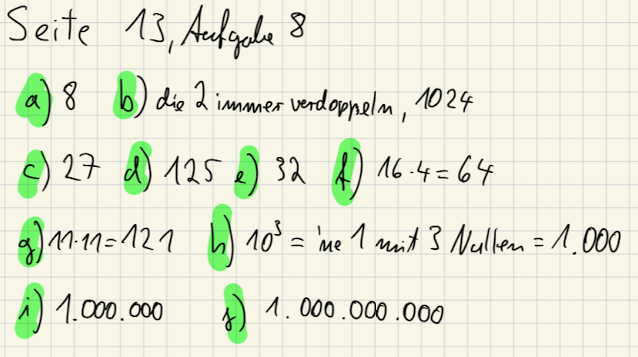 Seite 13, Aufgabe 8
a) 8 b) die 2 immer verdoppeln, 1024
c) 27 d) 125 e) 32 f) 16·4=64
g) 11·11=121 h) 10³ = 'ne 1 mit 3 Nullen = 1.000
i) 1.000.000 j) 1.000.000.000